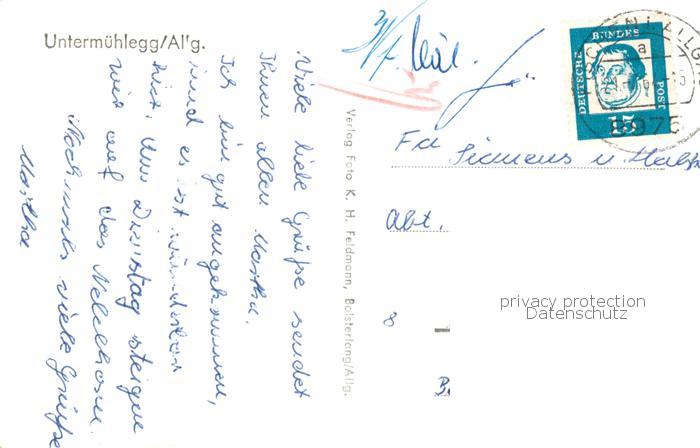 Untermühlegg/Allg.
Viele liebe Grüße sendet
Ihnen allen Martha.
Ich bin gut angekommen,
und es ist wunderbar
hier. Am Dienstag steigen
wir auf das Nebelhorn.
Nochmals viele Grüße
Martha
Verlag Foto K. H. Feldmann, Bolsterlang/Allg.
DEUTSCHE
BUNDES
POST
15
a
8975
Fa
Siemens u. Halske
Abt.
8
privacy protection
Datenschutz